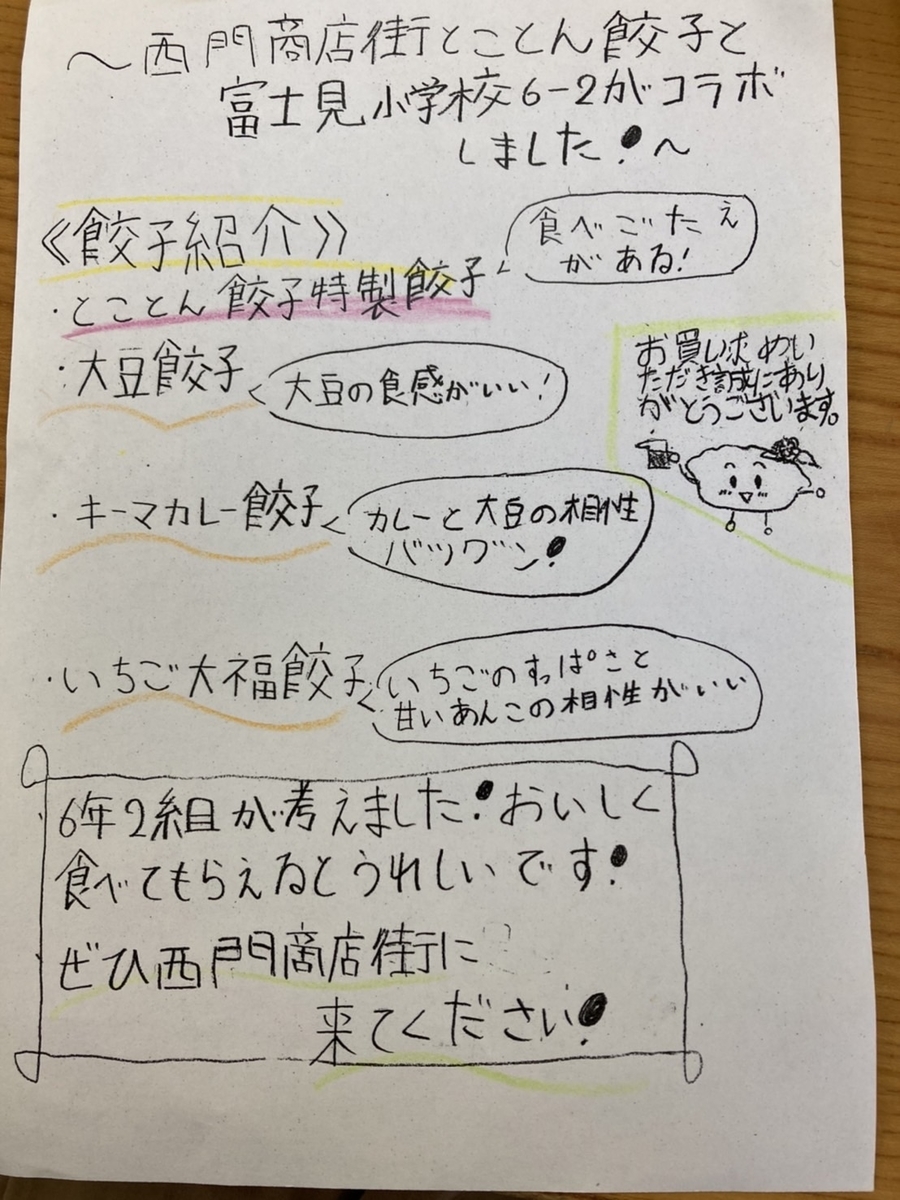 ～西門商店街とことん餃子と
富士見小学校6-2がコラボ
しました！～
《餃子紹介》
・とことん餃子特製餃子
食べごたえ
がある！
・大豆餃子
大豆の食感がいい！
お買い求めい
ただき誠にあり
がとうございます。
・キーマカレー餃子
カレーと大豆の相性
バツグン！
・いちご大福餃子
いちごのすっぱさと
甘いあんこの相性がいい
6年2組が考えました！おいしく
食べてもらえるとうれしいです！
ぜひ西門商店街に
来てください！